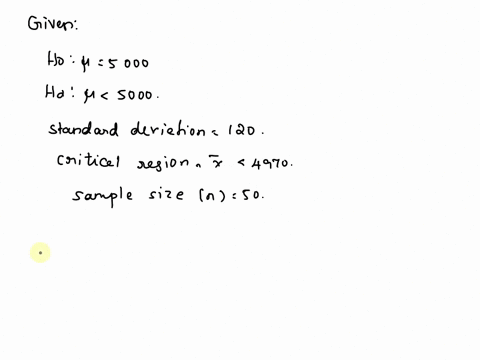 Given:
Ho: μ = 5 000
Ha: μ < 5000.
standard deviation = 120.
critical region = x̄ < 4970.
sample size (n) = 50.